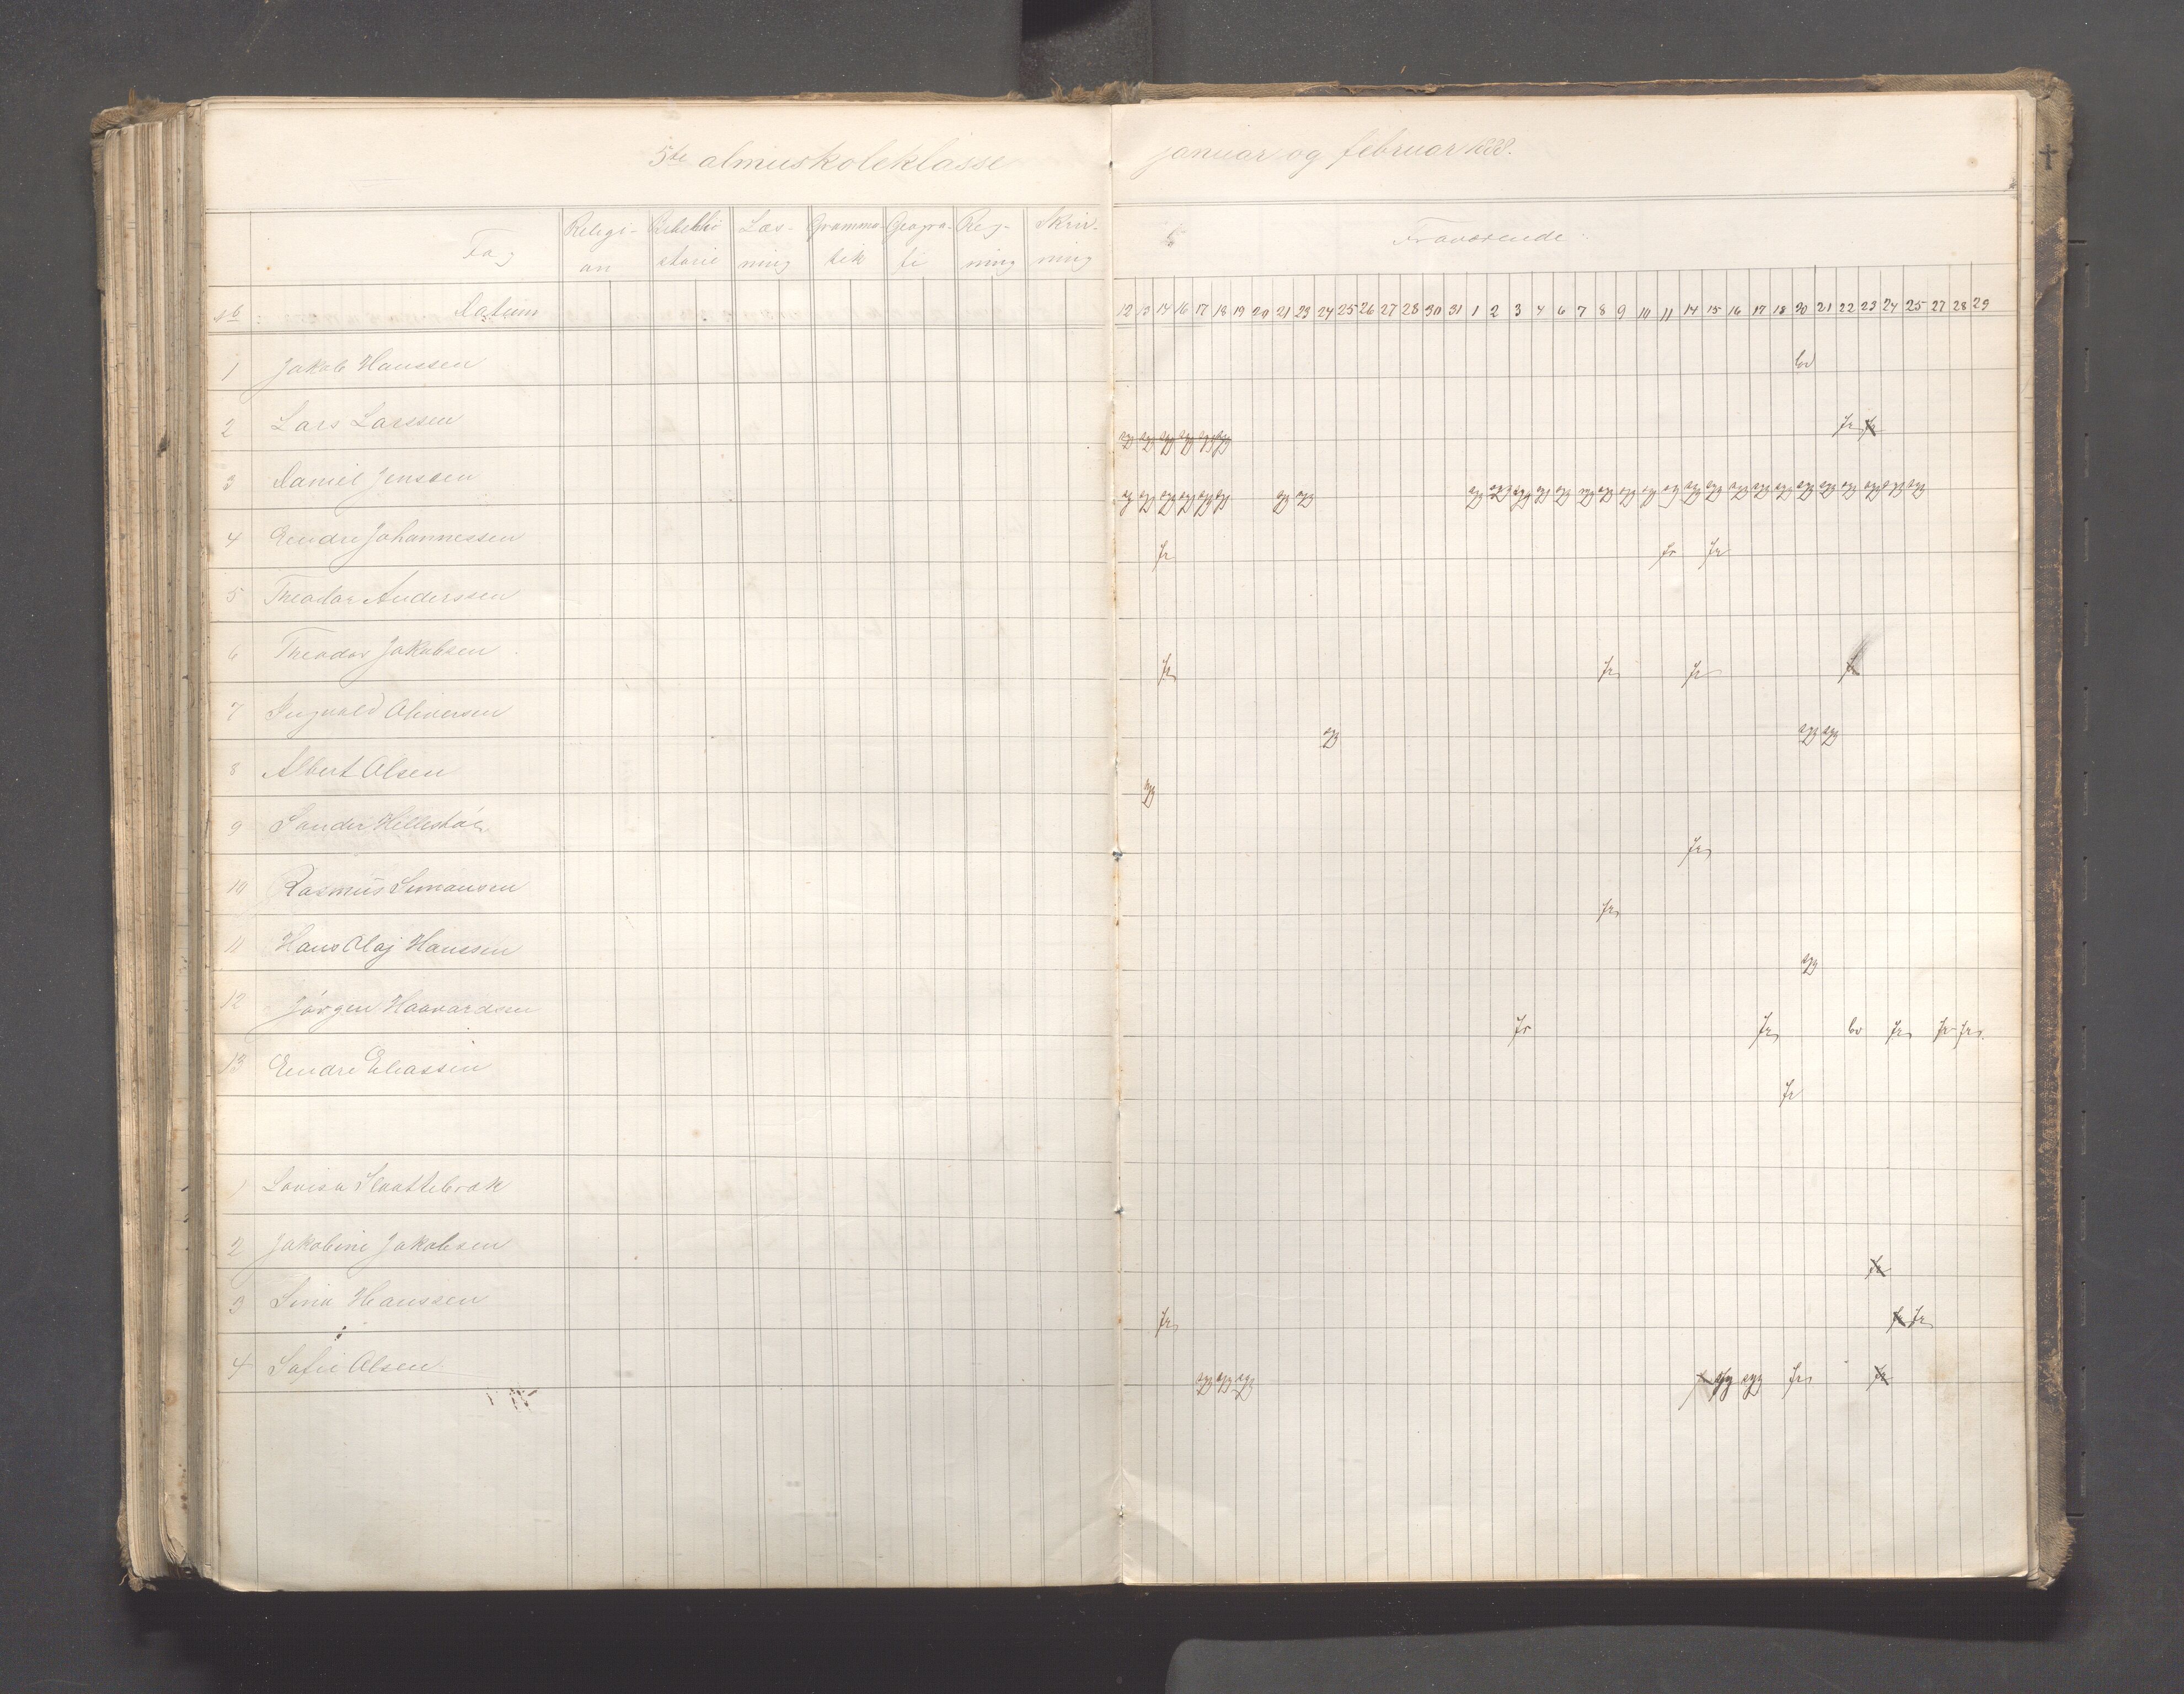 5te almueskoleklasse januar og februar 1888.
Fag Religi- Bibelhi Læs- Gramma- Geogra- Reg- Skriv- Fraværende
on storie ning tik fi ning ning
Datum 12 13 14 16 17 18 19 20 21 23 24 25 26 27 28 30 31 1 2 3 4 6 7 8 9 10 11 14 15 16 17 18 20 21 22 23 24 25 27 28 29
1 Jakob Hanssen bv
2 Lars Larssen syg syg syg syg syg syg fr fr
3 Daniel Jenssen syg syg syg syg syg syg syg syg syg syg syg syg syg syg syg syg syg syg syg syg syg syg syg syg syg syg syg syg syg
4 Endre Johannessen fr fr fr
5 Theodor Anderssen
6 Theodor Jakobsen fr fr fr fr
7 Ingvald Oliversen syg syg syg
8 Albert Olsen syg
9 Sander Hillestø fr
10 Rasmus Simonsen fr
11 Hans Olaj Hanssen syg
12 Jörgen Haavardsen fr fr bv fr fr fr
13 Endre Eliassen fr
1 Lovisa Slaattebrak
2 Jakobine Jakobsen fr
3 Sina Hanssen fr fr fr
4 Sofie Olsen syg syg syg syg syg fr fr